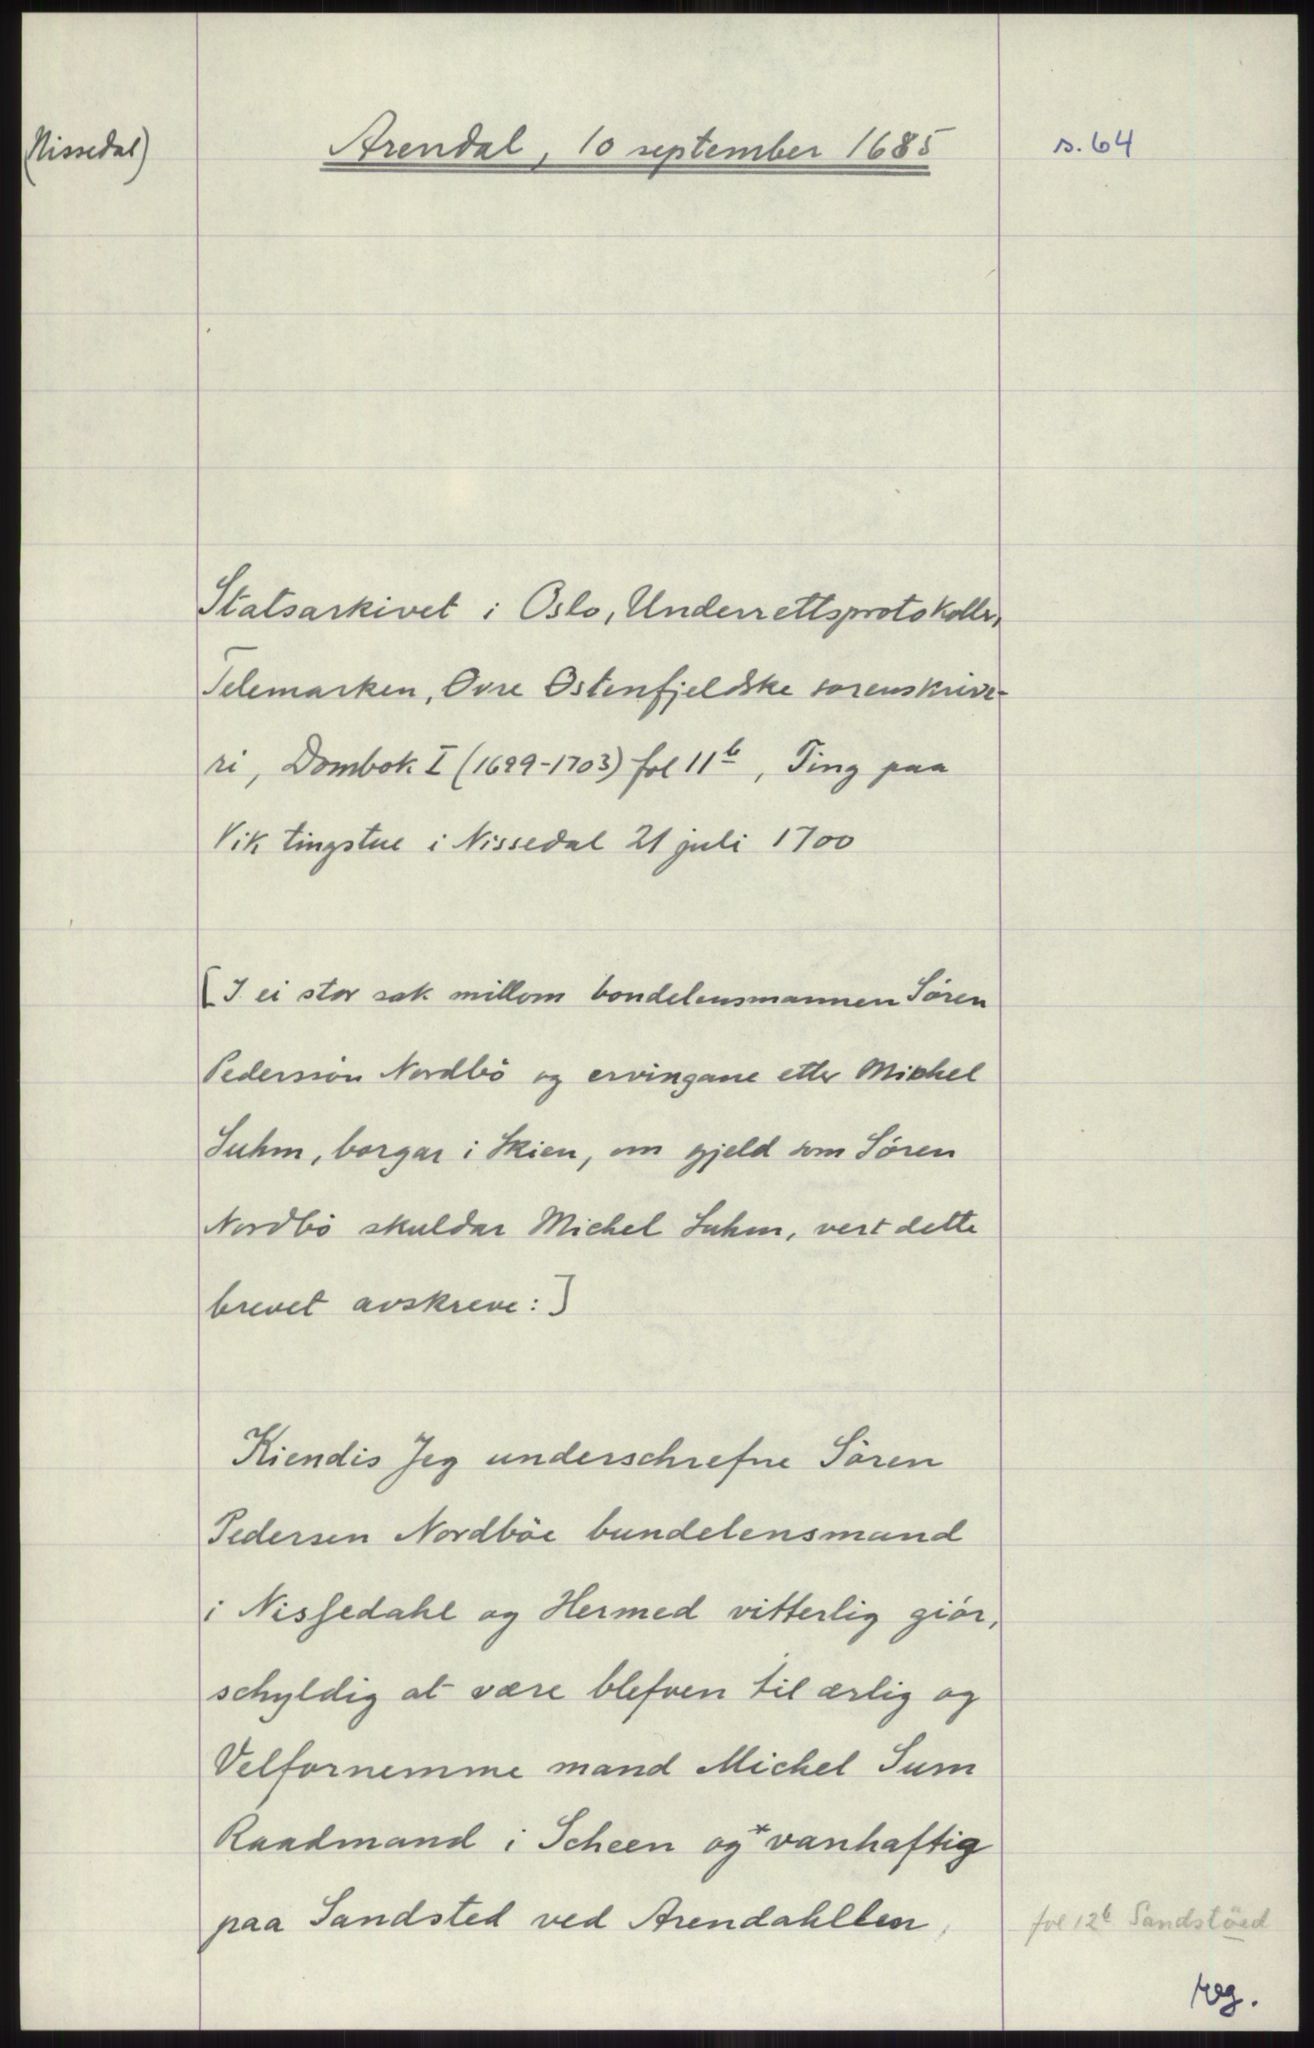 (Nissedal)
Arendal, 10 september 1685
s. 64
Statsarkivet i Oslo, Underrettsprotokoller,
Telemarken, Øvre Østenfjeldske sorenskrive-
ri, Dombok I (1699-1703) fol 11b, Ting paa
Vik tingstue i Nissedal 21 juli 1700
[I ei stor sak millom bondelensmannen Sören
Pederssön Nordbö og ervingane etter Michel
Suhm, borgar i Skien, om gjeld som Sören
Nordbö skuldar Michel Suhm, vert dette
brevet avskreve:]
Kiendis Jeg underschrefne Sören
Pedersen Nordböe bundelensmand
i Nissedahl og Hermed vitterlig giör,
schyldig at være blefven til ærlig og
Velfornemme mand Michel Sum
Raadmand i Scheen og *vanhaftig
paa Sandsted ved Arendahllen,
fol 12b Sandstöed
reg.